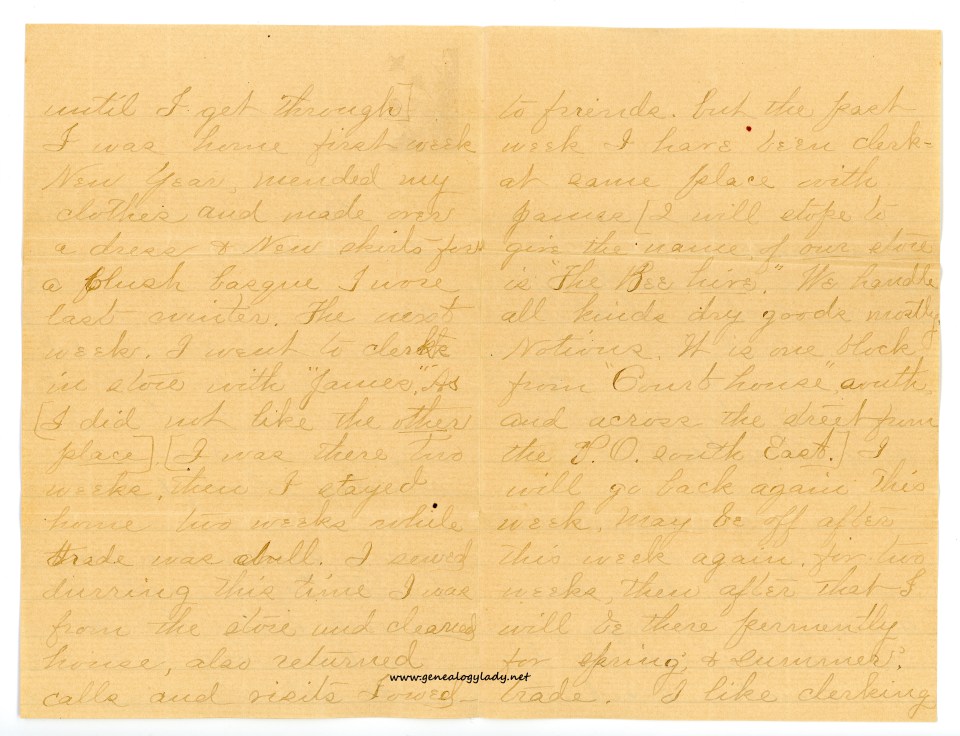 until I get through]
I was home first week
New Year, mended my
clothes and made over
a dress & New skirts for
a plush basque I wore
last winter. The next
week. I went to clerk
in store with "James", As
[I did not like the other
place] [I was there two
weeks, then I stayed
home two weeks while
trade was dull. I sewed
durring this time I was
from the store and cleaned
house, also returned
calls and visits I owed
to friends. but the past
week I have been clerk-
at same place with
James [I will stope to
give the name of our store
is "The Bee hive." We handle
all kinds dry goods mostly
Notions. It is one block
from "Court house" south
and across the street from
the P.O. south East.] I
will go back again This
week. May be off after
this week again. for two
weeks, then after that I
will be there permently
for spring & summer
trade. I like clerking
www.genealogylady.net